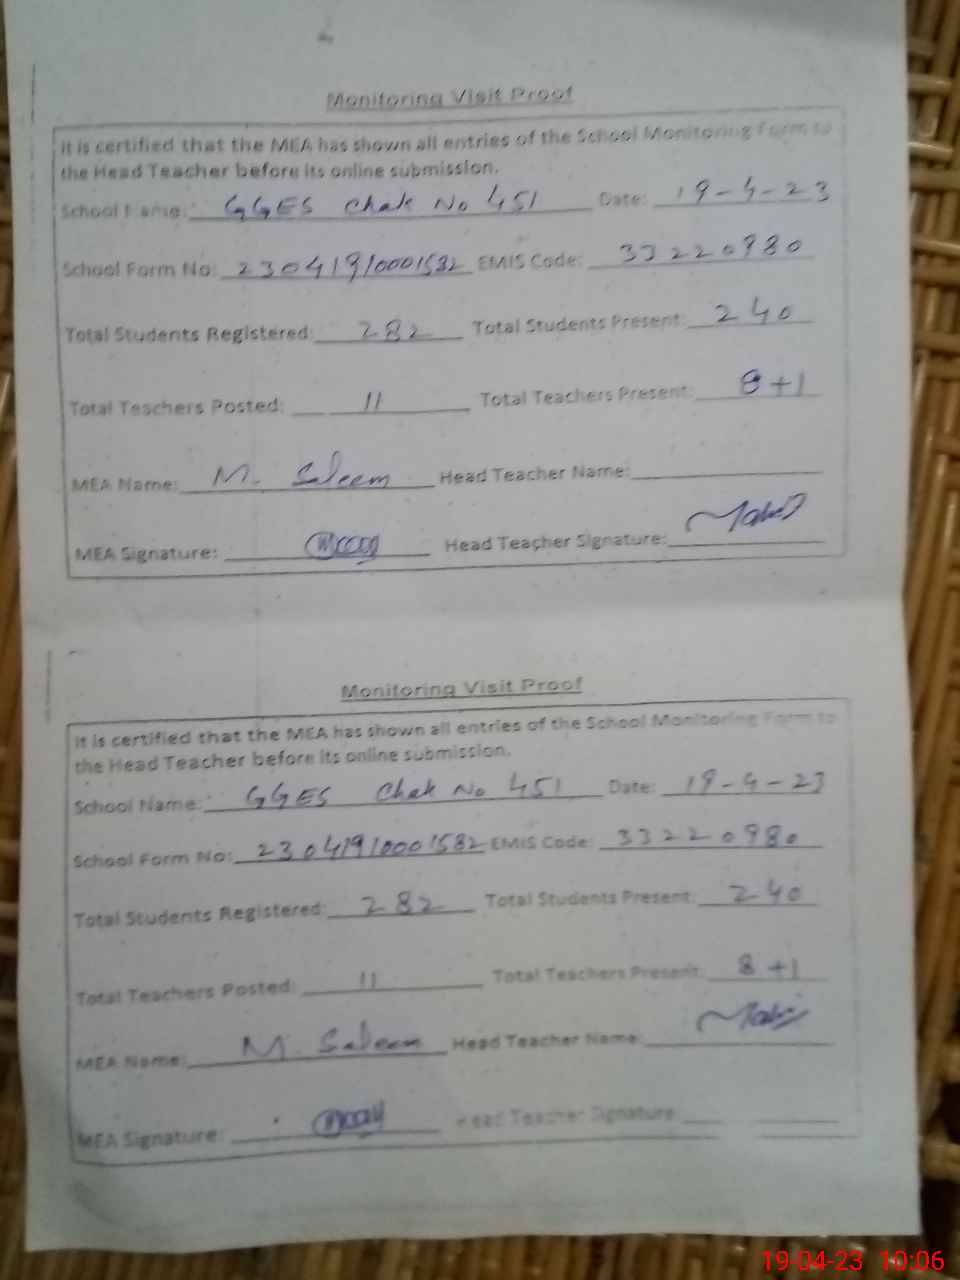 Monitoring Visit Proof
It is certified that the MEA has shown all entries of the School Monitoring Form to
the Head Teacher before its online submission.
School Name: GGES Chak No 451 Date: 19-4-23
School Form No: 23041910001582 EMIS Code: 33220980
Total Students Registered: 282 Total Students Present: 240
Total Teachers Posted: 11 Total Teachers Present: 8+1
MEA Name: M. Saleem Head Teacher Name:
MEA Signature: Head Teacher Signature:
Monitoring Visit Proof
It is certified that the MEA has shown all entries of the School Monitoring Form to
the Head Teacher before its online submission.
School Name: GGES Chak No 451 Date: 19-4-23
School Form No: 23041910001582 EMIS Code: 33220980
Total Students Registered: 282 Total Students Present: 240
Total Teachers Posted: 11 Total Teachers Present: 8+1
MEA Name: M. Saleem Head Teacher Name:
MEA Signature: Head Teacher Signature:
19-04-23 10:06